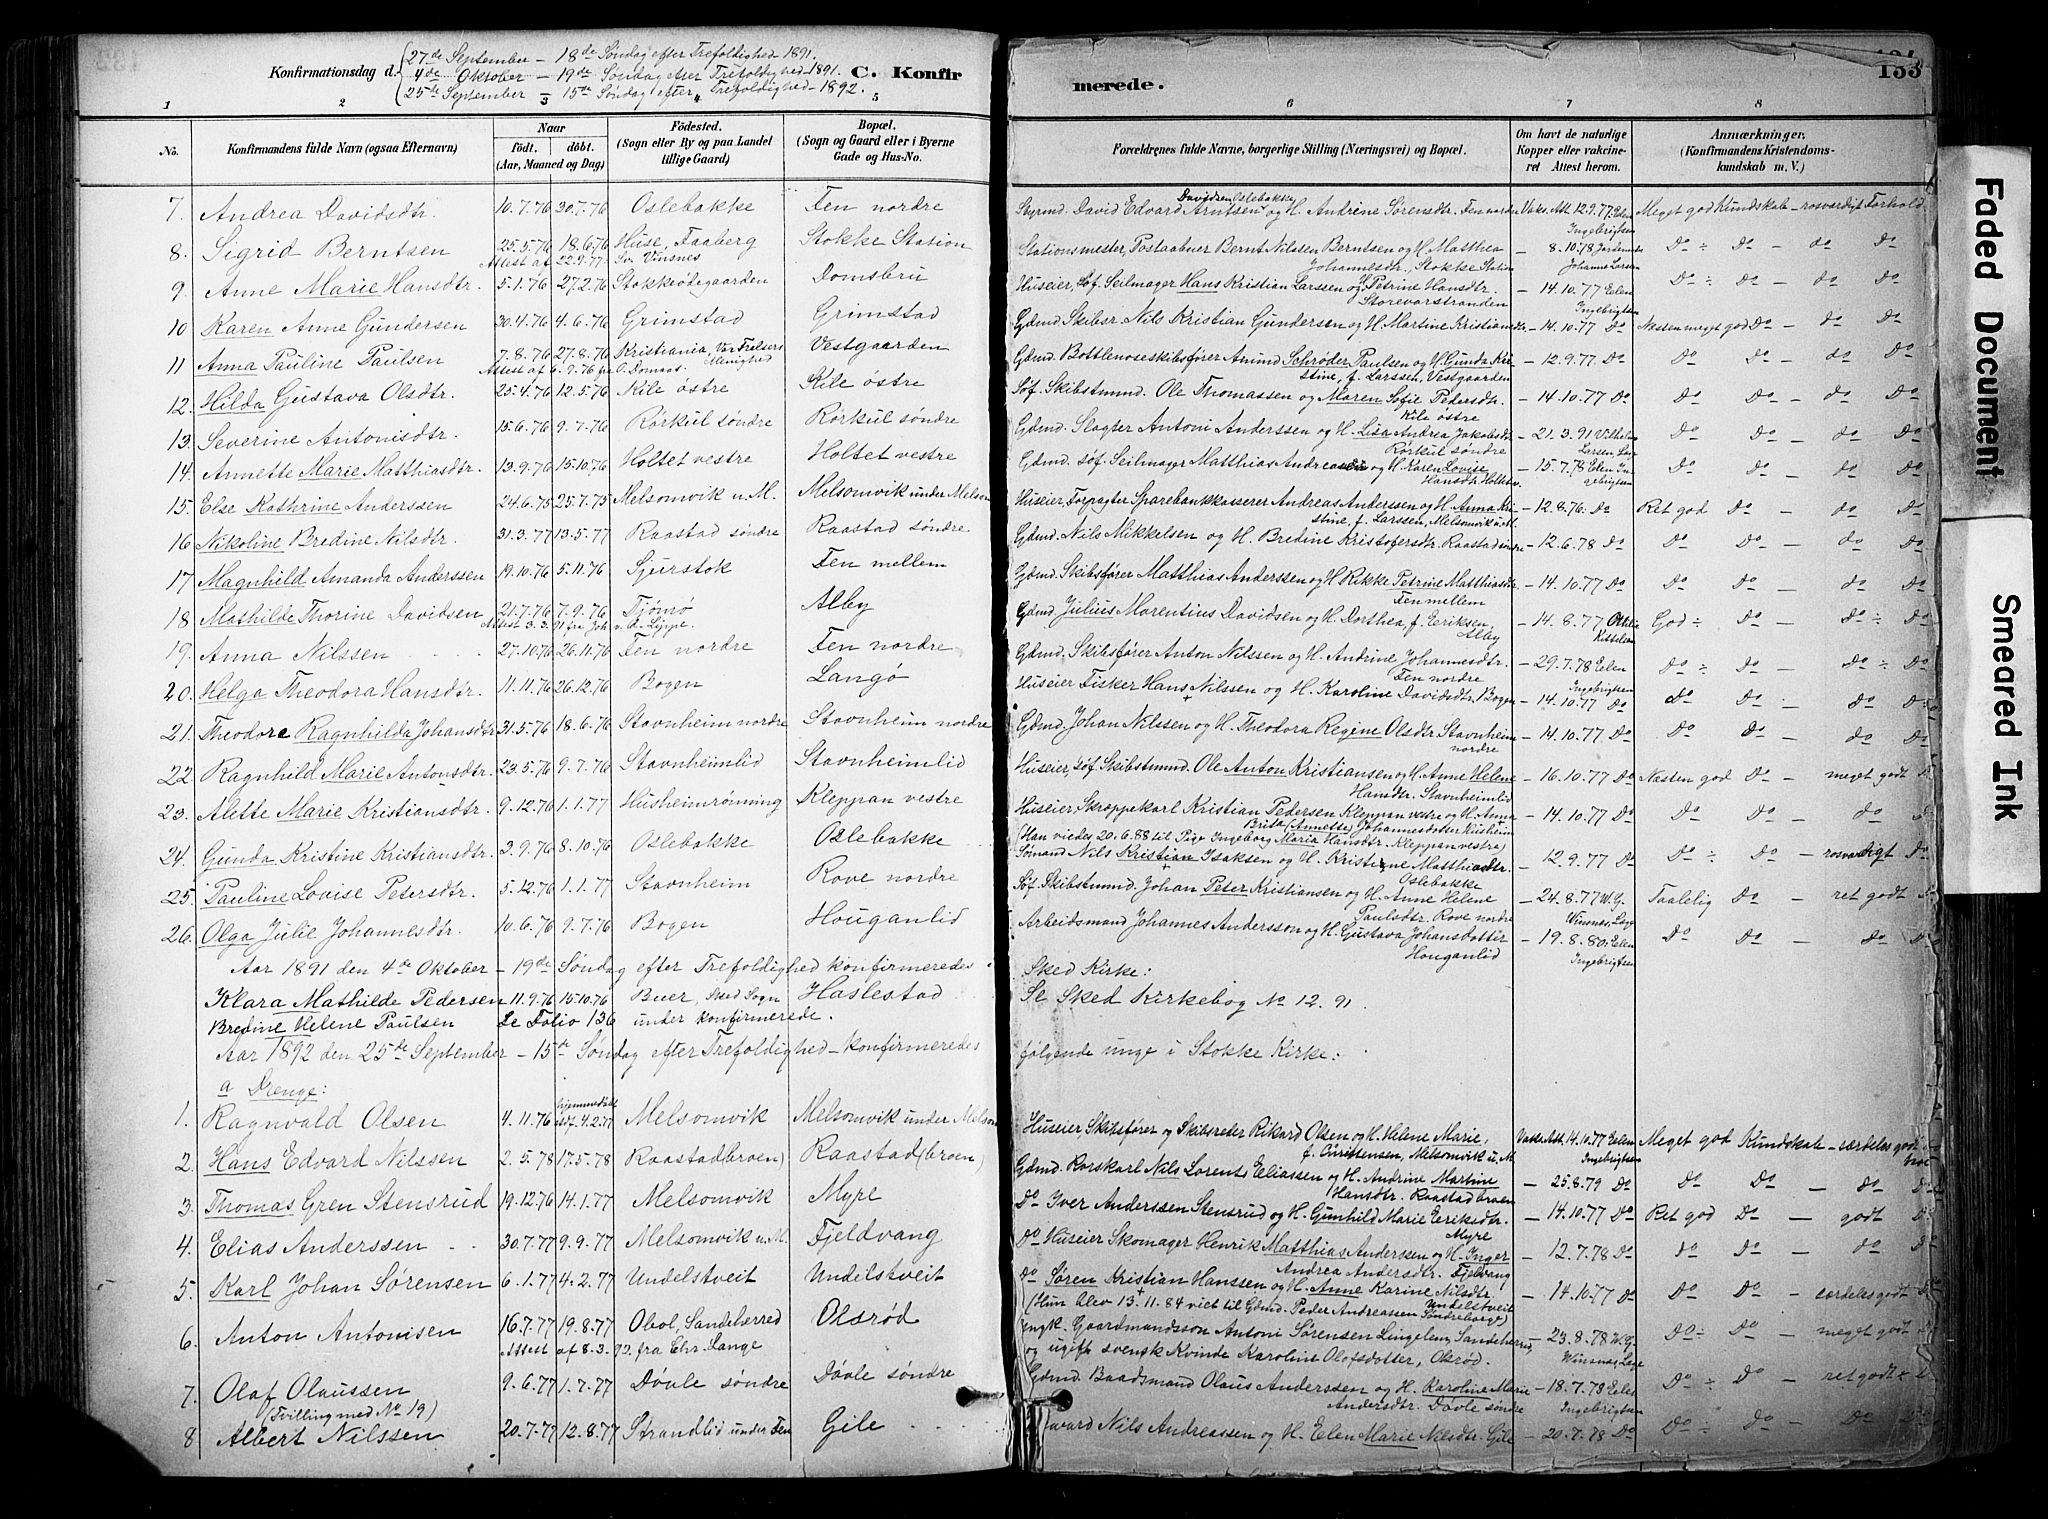 Konfirmationsdag d.
27de September – 18de Søndag efter Trefoldighed 1891.
4de Oktober – 19de Søndag efter Trefoldighed 1891.
25de September – 15de Søndag efter Trefoldighed – 1892.
C. Konfir
merede.
133
1 2 3 5 6 7 8
No.
Konfirmandens fulde Navn (ogsaa Efternavn)
Naar
født. døbt.
(Aar, Maaned og Dag)
Fødested.
(Sogn eller By og paa Landet
tillige Gaard)
Bopæl.
(Sogn og Gaard eller i Byerne
Gade og Hus-No.
Forældrenes fulde Navne, borgerlige Stilling (Næringsvei) og Bopæl.
Om havt de naturlige
Kopper eller vakcine-
ret Attest herom.
Anmærkninger,
(Konfirmandens Kristendoms-
kundskab m. V.)
7 Andrea Davidsdtr. 10.7.76 30.7.76 Oslebakke Fen nordre Styrmd. David Edvard Arntsen og H. Andrine Sørensdtr. Fen nordre Vaks. Att. 12.9.77 Eelen Meget god Kundskab – rosværdigt Forhold.
Davidsen Oslebakke
Ingebrigtsen
8. Sigrid Berntsen 25.5.76 18.6.76 Huse, Faaberg Stokke Station Stationsmester, Postaabner Bernt Nilssen Berntsen og H. Matthea – 8.10.78 Do ÷ Do – do Do
Attest af 22.9.77 Sv. Vinsnes Johannesdtr., Stokke Station Johanne Larsen
9 Anne Marie Hansdtr. 5.1.76 27.2.76 Stokkeødegaarden Domsbru Huseier, Søf. Seilmager Hans Kristian Larssen og H. Petrine Hansdtr. – 14.10.77 Eelen Do ÷ Do – do Do
Storevarstranden Ingebrigtsen
10 Karen Anne Gundersen 30.4.76 4.6.76 Grimstad Grimstad Gdmd. Skibsr. Nils Kristian Gundersen og H. Martine Kristiansdtr – 14.10.77 Do Næsten meget god Do – do Do
11 Anna Pauline Paulsen 7.8.76 27.8.76 Kristiania, Vor Frelsers Vestgaarden Gdmd. Bottlenoseskibsfører Amund Schrøder Paulsen og H. Gunda Kri- – 12.9.77 Do Do Do – do Do
Attest af 6.9.76 fr. O. Domaas Menighed stine, f. Larssen, Vestgaarden
12. Hilda Gustava Olsdtr. 25.4.76 12.5.76 Kile østre Kile østre Søf. Skibstmmd. Ole Thomassen og Maren Sofie Pedersdtr. – 14.10.77 Do Do Do – do Do
Kile østre
13. Severine Antonisdtr. 15.6.76 9.7.76 Rørkul søndre Rørkul søndre Gdmd. Slagter Antoni Anderssen og H. Lisa Andrea Jakobsdtr – 21.3.91 Vilhelm Do Do – do Do
Rørkul søndre
14. Annette Marie Matthiasdtr. 13.9.76 15.10.76 Holtet vestre Holtet vestre Gdmd. Søf. Seilmager Matthias Andreassen og H. Karen Lovise – 15.7.78 Eelen In- Do Do – do Do
Hansdtr. Holtet v. gebrigtsen
15. Else Kathrine Anderssen 24.6.75 25.7.75 Melsomvik u. M. Melsomvik under Melsom Huseier Forpagter Sparebankkasserer Andreas Anderssen og H. Anna Kri- – 12.8.76 Do Ret god Do – do Do
stine, f. Larssen, Melsomvik u. M.
16 Nikoline Bredine Nilsdtr. 31.3.77 13.5.77 Raastad søndre Raastad søndre Gdmd. Nils Mikkelsen og H. Bredine Kristofersdtr. Raastad søndre – 12.6.78 Do Do Do – do Do
17 Magnhild Amanda Anderssen 19.10.76 5.11.76 Sjurstok Fen mellem Gdmd. Skibsfører Matthias Anderssen og H. Rikke Petrine Matthiasdtr – 14.10.77 Do Do Do do Do
Fen mellem
18 Mathilde Thorine Davidsen 21.7.76 7.9.76 Tjømø Alby Gdmd Julius Marentius Davidsen og H. Dorthea, f. Eeriksen, – 14.8.77 God ÷ Do – do ÷ Do
Attest 3.3.91 fra Joh v. d. Lippe. Alby
19. Anna Nilssen 27.10.76 26.11.76 Fen nordre Fen nordre Gdmd. Skibsfører Anton Nilssen og H. Andrine Johannesdtr. – 29.7.78 Eelen Do ÷ Do – do ÷ Do
Fen nordre Ingebrigtsen
20. Helga Theodora Hansdtr. 11.11.76 26.12.76 Bogen Langø Huseier Fisker Hans Nilssen og H. Karoline Davidsdtr, Bogen – 14.10.77 Do Do Do – do Do
21. Theodore Ragnhilda Johansdtr 31.5.76 18.6.76 Stavnheim nordre Stavnheim nordre Gdmd. Johan Nilssen og H. Theodora Regine Olsdtr Stavnheim – 14.10.77 Do Do Do – do Do
nordre
22. Ragnhild Marie Antonsdtr. 23.5.76 9.7.76 Stavnheimlid Stavnheimlid Huseier, Søf. Skibstmmd. Ole Anton Kristiansen og H. Anne Helene – 16.10.77 Do Næsten god Do – meget godt Do
Hansdtr. Stavnheimlid
23. Alette Marie Kristiansdtr. 9.12.76 1.1.77 Husheimrønning Kleppan vestre Huseier, Skroppekarl Kristian Pedersen Kleppan vestre og H. Anna – 14.10.77 Do Do Do – do
Brita (Annette) Johannesdotter Husheim
(Han viedes 20.6.88 til Pige Ingeborg Maria Hansdtr. Kleppan vestre)
24. Gunda Kristine Kristiansdtr. 3.9.76 8.10.76 Oslebakke Oslebakke Sømand Nils Kristian Isaksen og H. Kristine Matthiasdtr. – 12.9.77 Do Do ÷ Do – rosværdigt Do
Oslebakke
25. Pauline Lovise Petersdtr. 5.12.76 1.1.77 Stavnheim Rove nordre Søf. Skibstmmd. Johan Peter Kristiansen og H. Anne Helene – 24.8.77 W.G. Taalelig Do – ret godt Do
Paulsdtr. Rove nordre
26. Olga Julie Johannesdtr. 10.6.76 9.7.76 Bogen Houganlid Arbeidsmand Johannes Andersson og H. Gustava Johansdotter – 19.8.80, Eelen Do Do – Do Do
Houganlid Ingebrigtsen
Aar 1891 den 4de Oktober – 19de Søndag efter Trefoldighed konfirmeredes i Sked Kirke:
Klara Mathilde Pedersen 11.9.76 15.10.76 Buer, Sked Sogn Haslestad Se Sked Kirkebog No 12. 91.
Bredine Helene Paulsen Se Folio 136 under konfirmerede.
Aar 1892 den 25de September – 15de Søndag efter Trefoldighed – konfirmeredes følgende unge i Stokke Kirke:
a Drenge:
1. Ragnvald Olsen 4.11.76 hjemmedøbt 4.2.77 Melsomvik Melsomvik under Melsom Huseier, Skibsfører og Skibsreder Rikard Olsen og H. Helene Marie, Vakc. Att. 14.10.77 Eelen Meget god Kundskab – særdeles godt
f. Christensen, Melsomvik u. M. Ingebrigtsen
2. Hans Edvard Nilssen 2.5.78 17.5.78 Raastad(broen) Raastad(broen) Gdmd. Rorskarl Nils Lorents Eeliassen og H. Andrine Martine – 25.8.79 Do Do Do – do Do
Hansdtr. Raastadbroen
3. Thomas Gren Stensrud 19.12.76 14.1.77 Melsomvik Myre Do Iver Anderssen Stensrud og H. Gunhild Marie Eeriksdtr. – 14.10.77 Do Ret god Do – godt Do
Myre
4. Elias Anderssen 30.7.77 9.9.77 Melsomvik u. M. Fjeldvang Do Huseier Skomager Henrik Matthias Anderssen og H. Inger – 12.7.78 Do Do Do – do Do
Andrea Andersdtr. Fjeldvang
5. Karl Johan Sørensen 6.1.77 4.2.77 Undelstveit Undelstveit Do Søren Kristian Hanssen og H. Anne Karine Nilsdtr. – 14.10.77 Do Do Do – særdeles godt Do
Undelstveit
(Hun blev 13.11.84 viet til Gdmd. Peder Andreassen Søndreborge)
6. Anton Antonisen 16.7.77 19.8.77 Obol, Sandeherred Olsrød Ungk. Gaardmandssøn Antoni Sørensen Lingelem, Sandeherred, – 23.8.78 W.G. Do ÷ Do – meget godt Do
Attest af 8.3.92. fra Chr. Lange og ugift svensk Kvinde Karoline Olofsdotter, Olsrød.
7. Olaf Olaussen 9.6.77 1.7.77 Døvle søndre Døvle søndre Gdmd. Baadsmand Olaus Anderssen og H. Karoline Marie – 18.7.78 Eelen Do ÷ Do – ret godt
(Tvilling med No 19) Andersdtr. Døvle søndre Ingebrigtsen
8 Albert Nilssen 20.7.77 12.8.77 Strandlid under Fen Gile Nils Andreassen og H. Eelen Marie Nilsdtr. Gile – 20.7.78 Do Do ÷ Do – Do
Faded Document
Smeared Ink